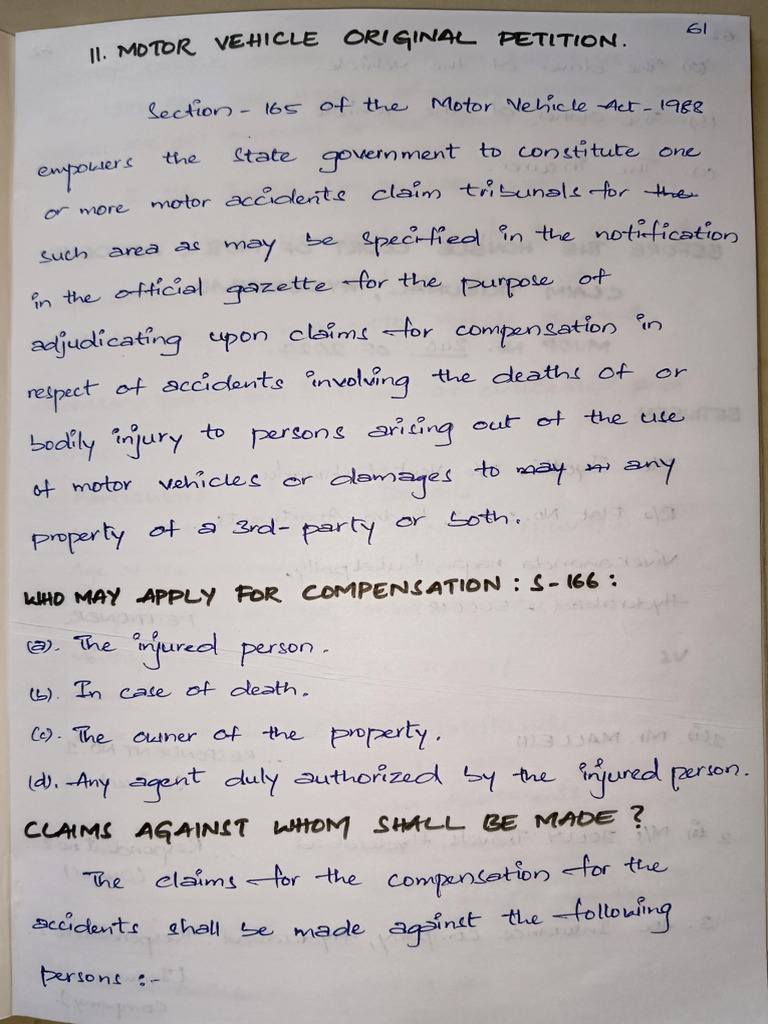 61
11. MOTOR VEHICLE ORIGINAL PETITION.
Section - 165 of the Motor Vehicle Act - 1988
empowers the State government to constitute one
or more motor accidents claim tribunals for the
such area as may be specified in the notification
in the official gazette for the purpose of
adjudicating upon claims for compensation in
respect of accidents involving the deaths of or
bodily injury to persons arising out of the use
of motor vehicles or damages to may in any
property of a 3rd-party or both.
WHO MAY APPLY FOR COMPENSATION : S-166 :
(a). The injured person.
(b). In case of death.
(c). The owner of the property.
(d). Any agent duly authorized by the injured person.
CLAIMS AGAINST WHOM SHALL BE MADE ?
The claims for the compensation for the
accidents shall be made against the following
persons :-